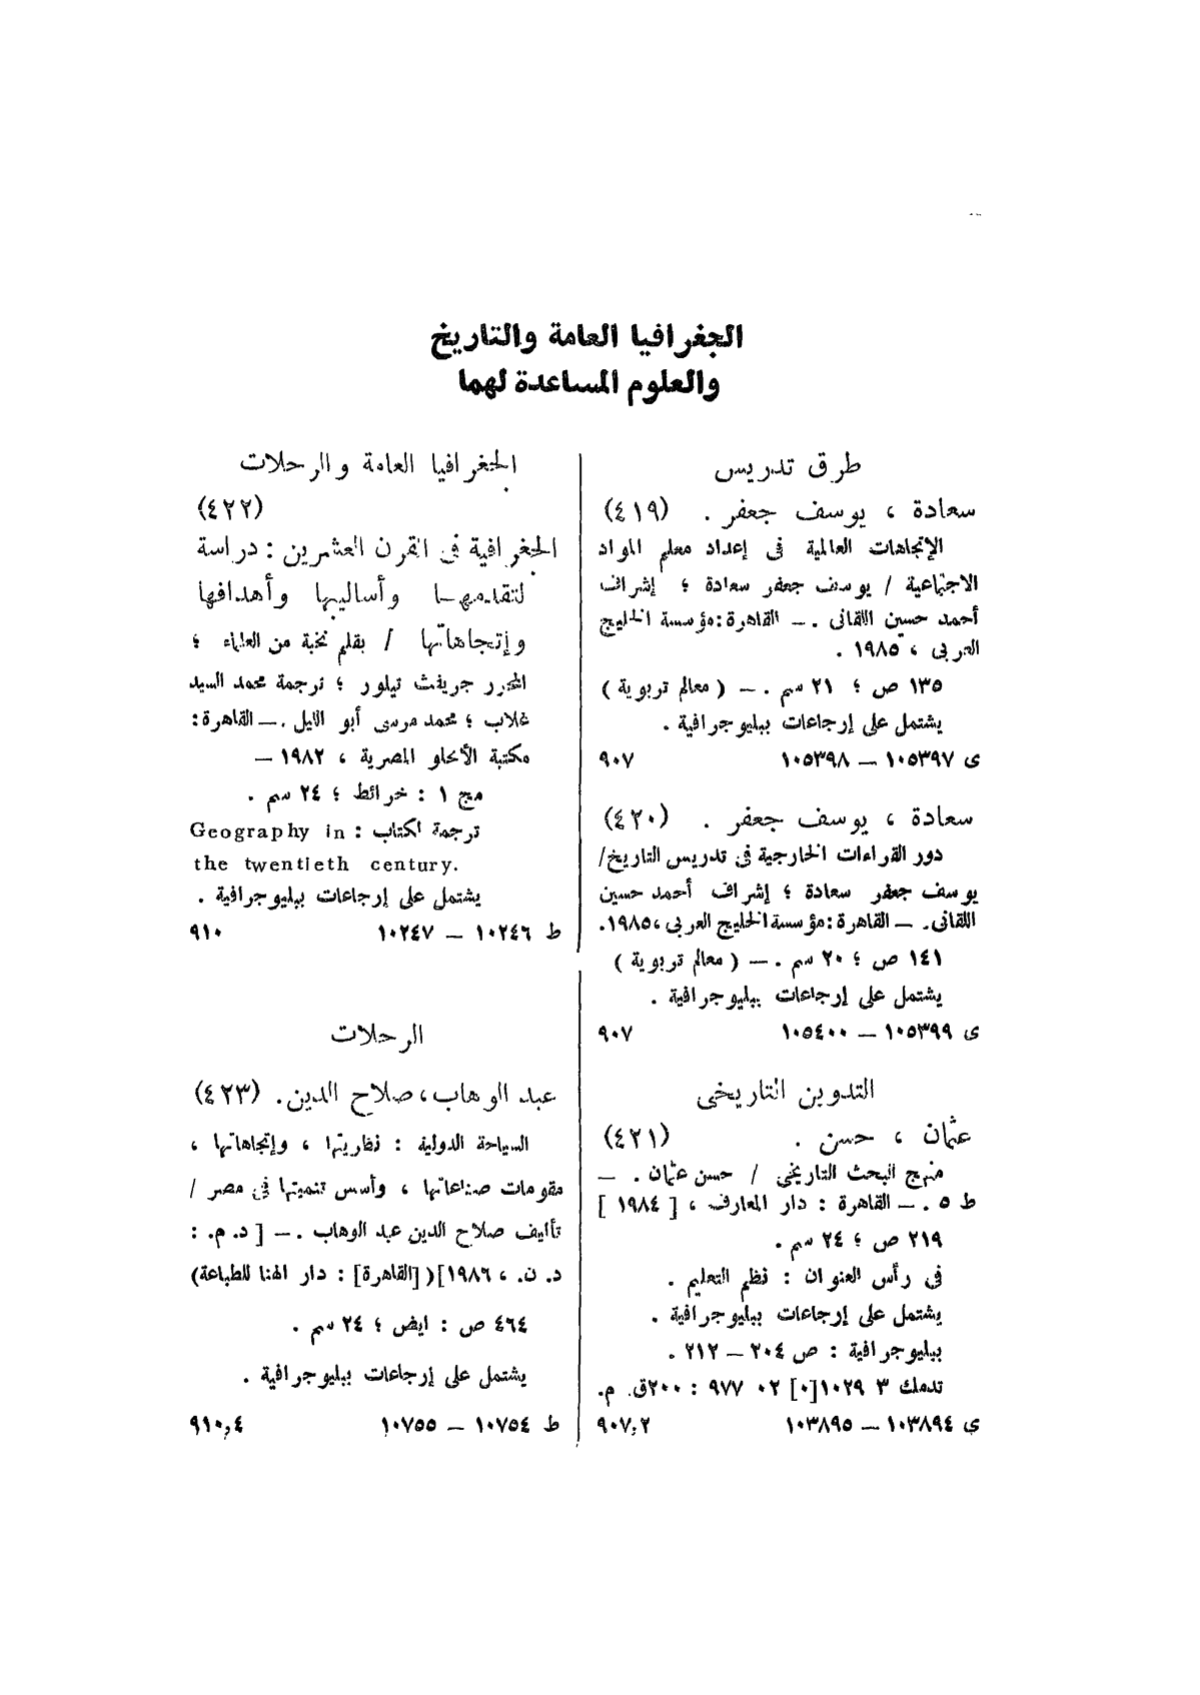 الجغرافيا العامة والتاريخ
والعلوم المساعدة لهما
طرق تدريس
سعادة ، يوسف جعفر . (٤١٩)
الإتجاهات العالمية فى إعداد معلم المواد
الاجتماعية / يوسف جعفر سعادة ؛ إشراف
أحمد حسين اللقانى . ــ القاهرة : مؤسسة الخليج
العربى ، ١٩٨٥ .
١٣٥ ص ؛ ٢١ سم . ــ ( معالم تربوية )
يشتمل على إرجاعات ببليوجرافية .
ى ١٠٥٣٩٧ ــ ١٠٥٣٩٨ ٩٠٧
سعادة ، يوسف جعفر . (٤٢٠)
دور القراءات الخارجية فى تدريس التاريخ /
يوسف جعفر سعادة ؛ إشراف أحمد حسين
اللقانى . ــ القاهرة : مؤسسة الخليج العربى ، ١٩٨٥ .
١٤١ ص ؛ ٢٠ سم . ــ ( معالم تربوية )
يشتمل على إرجاعات ببليوجرافية .
ى ١٠٥٣٩٩ ــ ١٠٥٤٠٠ ٩٠٧
التدوين التاريخى
عثمان ، حسن . (٤٢١)
منهج البحث التاريخى / حسن عثمان . ــ
ط ٥ . ــ القاهرة : دار المعارف ، [ ١٩٨٤ ]
٢١٩ ص ؛ ٢٤ سم .
فى رأس العنوان : نظم التعليم .
يشتمل على إرجاعات ببليوجرافية .
ببليوجرافية : ص ٢٠٤ ــ ٢١٢ .
تدمك ٣ ١٠٢٩[٠] ٠٢ ٩٧٧ : ٢٠٠ق. م.
ى ١٠٣٨٩٤ ــ ١٠٣٨٩٥ ٩٠٧,٢
الجغرافيا العامة والرحلات
(٤٢٢)
الجغرافية فى القرن العشرين : دراسة
لتقدمهـا وأساليبها وأهدافها
وإتجاهاتها / بقلم نخبة من العلماء ؛
المحرر جريفث تيلور ؛ ترجمة محمد السيد
غلاب ؛ محمد مرسى أبو الليل . ــ القاهرة :
مكتبة الأنجلو المصرية ، ١٩٨٢ ــ
مج ١ : خرائط ؛ ٢٤ سم .
ترجمة لكتاب : Geography in
the twentieth century.
يشتمل على إرجاعات ببليوجرافية .
ط ١٠٢٤٦ ــ ١٠٢٤٧ ٩١٠
الرحلات
عبد الوهاب ، صلاح الدين . (٤٢٣)
السياحة الدولية : نظريتها ، وإتجاهاتها ،
مقومات صناعاتها ، وأسس تنميتها فى مصر /
تأليف صلاح الدين عبد الوهاب . ــ [ د. م. :
د. ن. ، ١٩٨٦]( [القاهرة] : دار الهنا للطباعة)
٤٦٤ ص : ايض ؛ ٢٤ سم .
يشتمل على إرجاعات ببليوجرافية .
ط ١٠٧٥٤ ــ ١٠٧٥٥ ٩١٠,٤